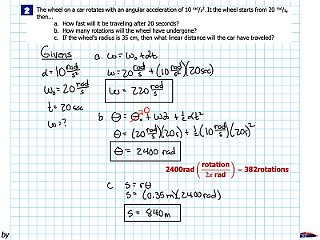 2 The wheel on a car rotates with an angular acceleration of 10 rad/s². It the wheel starts from 20 rad/s, then...
a. How fast will it be traveling after 20 seconds?
b. How many rotations will the wheel have undergone?
c. If the wheel's radius is 35 cm, then what linear distance will the car have traveled?
Givens
α = 10 rad/s²
ω₀ = 20 rad/s
t = 20 sec
ω = ?
a ω = ω₀ + αt
ω = 20 rad/s + (10 rad/s²)(20 sec)
ω = 220 rad/s
b θ = θ₀ 0 + ω₀t + ½αt²
θ = (20 rad/s)(20s) + ½(10 rad/s²)(20s)²
θ = 2400 rad
2400rad (rotation / 2π rad) = 382rotations
c s = rθ
s = (0.35m)(2400 rad)
s = 840m
by